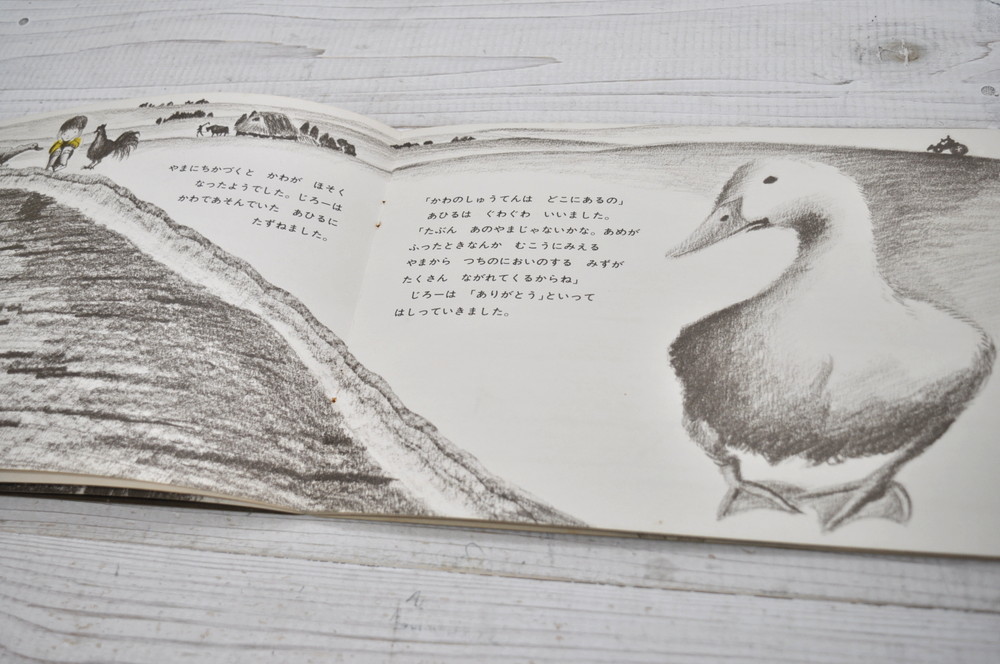 やまにちかづくと　かわが　ほそく
なったようでした。じろーは
かわであそんでいた　あひるに
たずねました。
「かわのしゅうてんは　どこにあるの」
あひるは　ぐわぐわ　いいました。
「たぶん　あのやまじゃないかな。あめが
ふったときなんか　むこうにみえる
やまから　つちのにおいのする　みずが
たくさん　ながれてくるからね」
じろーは　「ありがとう」といって
はしっていきました。